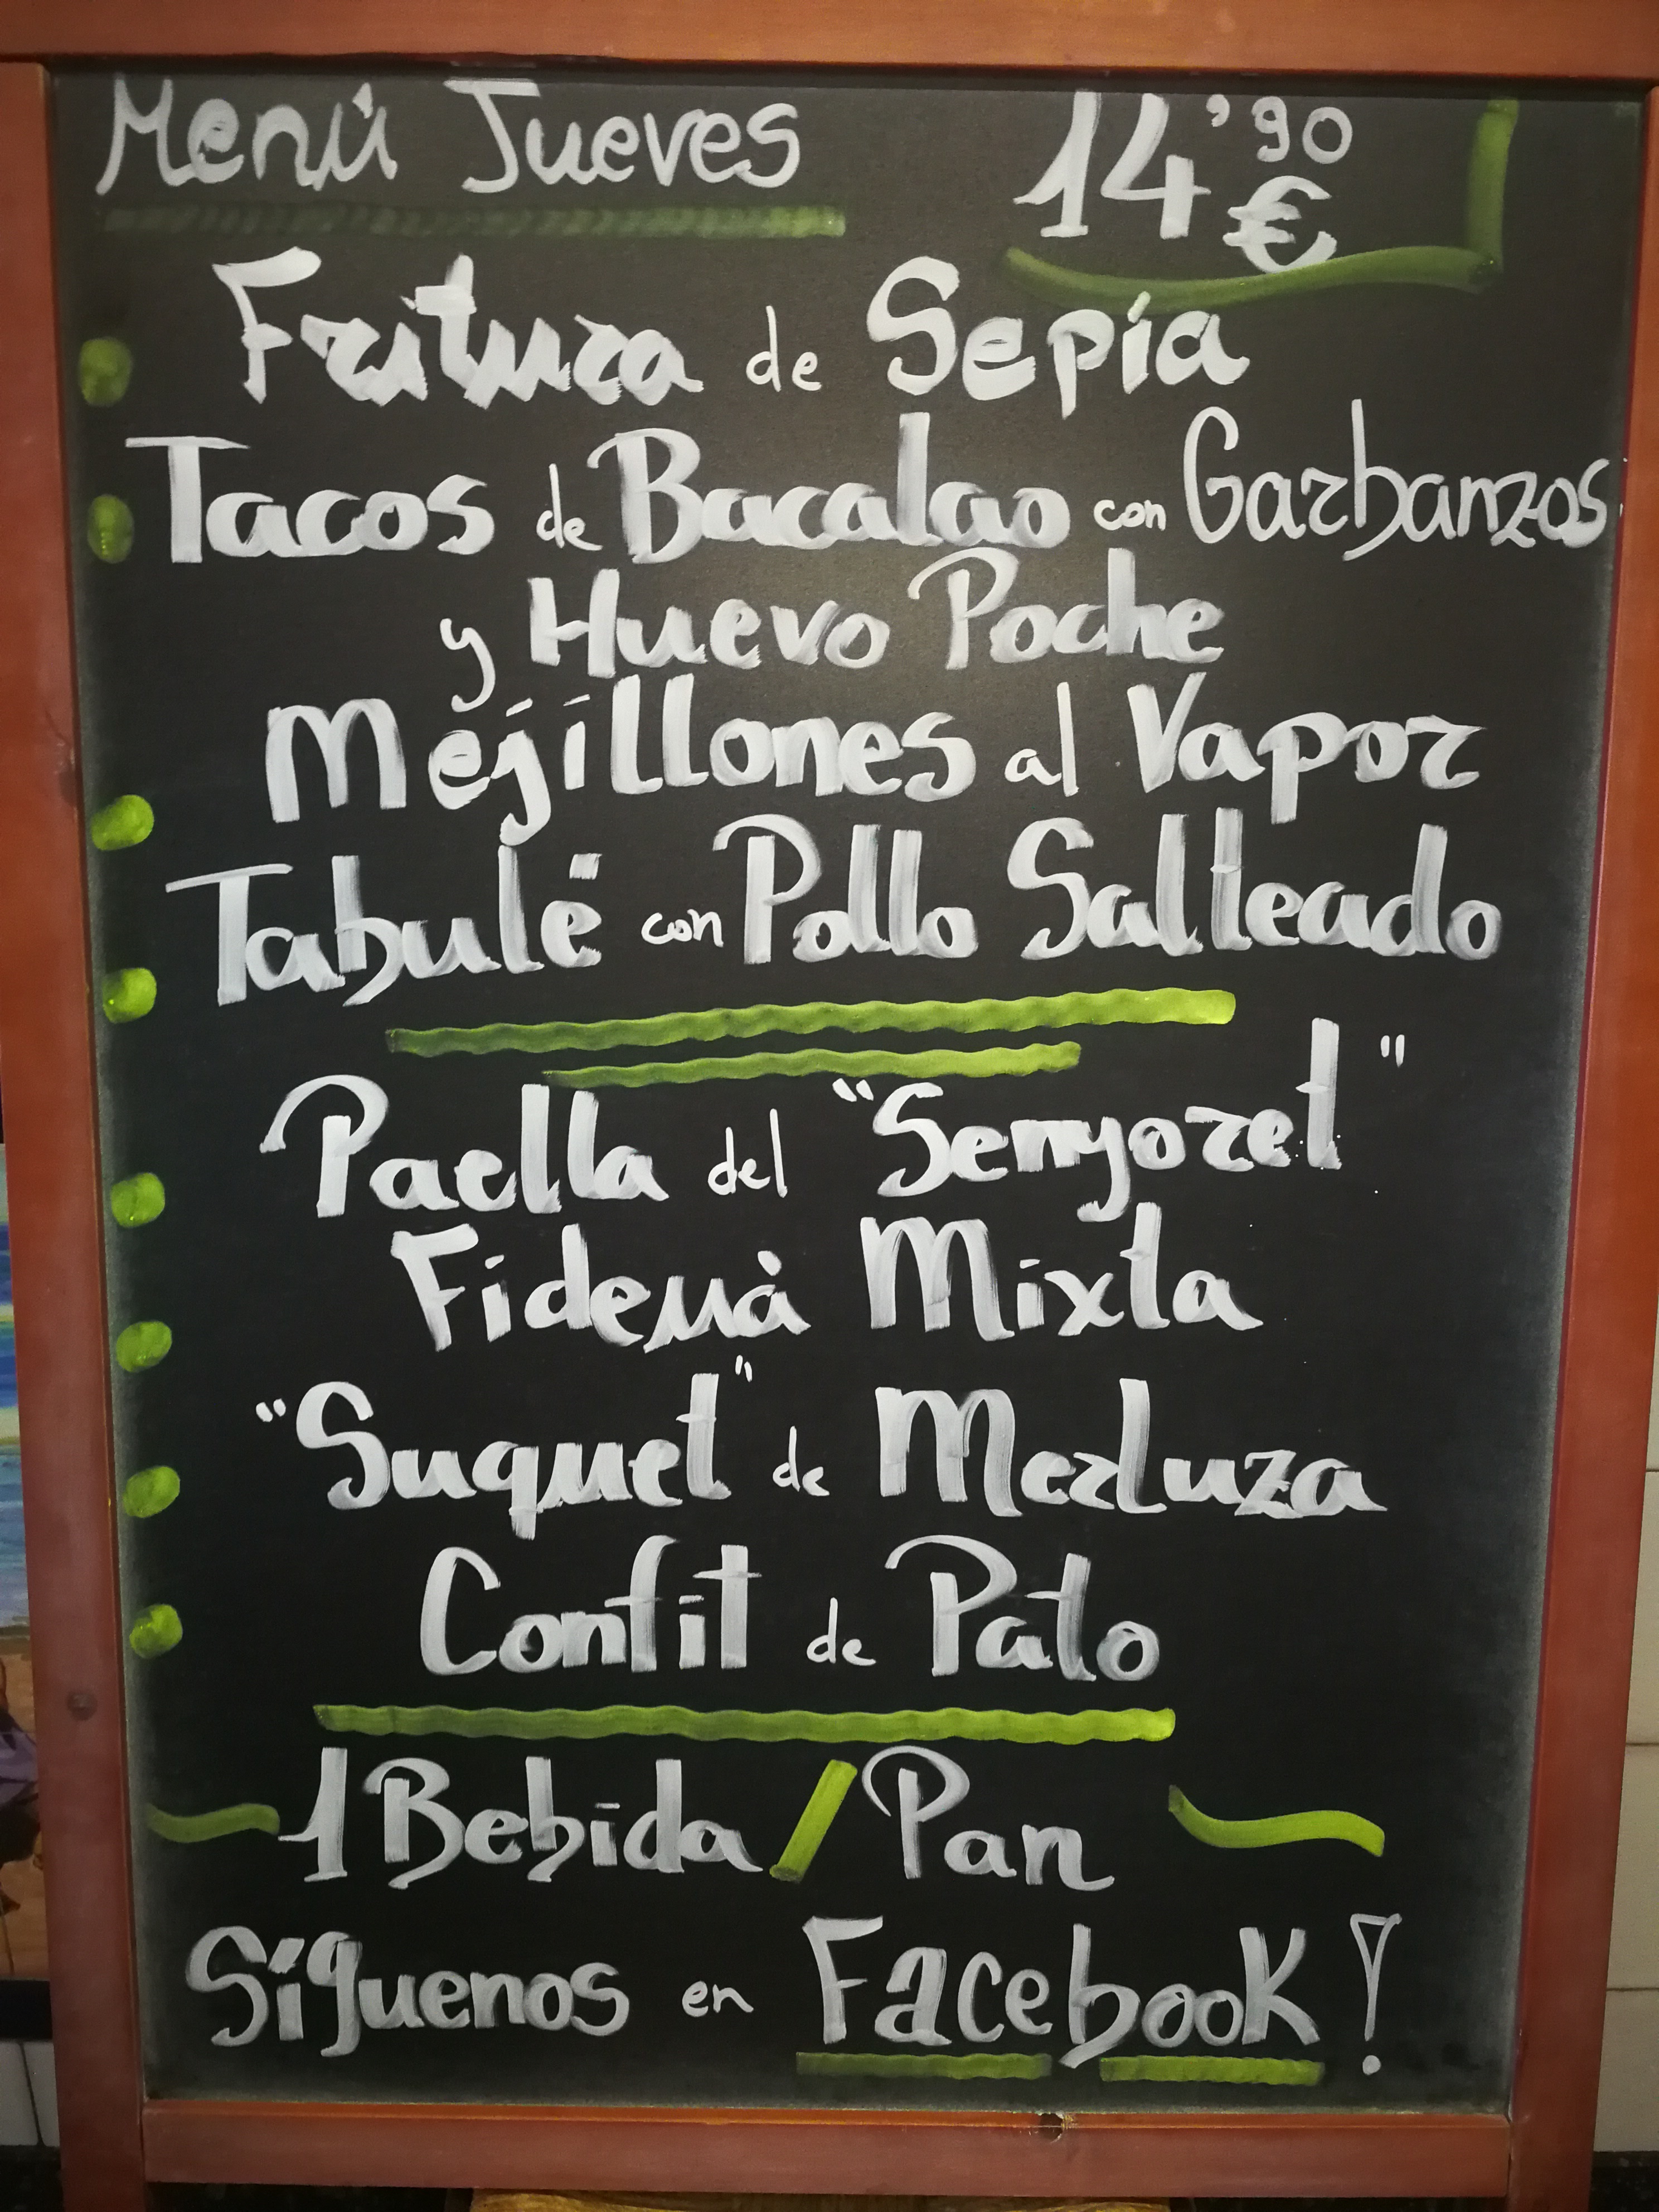 Menú Jueves 14'90 €
Fritura de Sepia
Tacos de Bacalao con Garbanzos
y Huevo Poche
Mejillones al Vapor
Tabulé con Pollo Salteado
Paella del "Senyoret"
Fideuà Mixta
"Suquet" de Merluza
Confit de Pato
1 Bebida / Pan
Síguenos en Facebook!